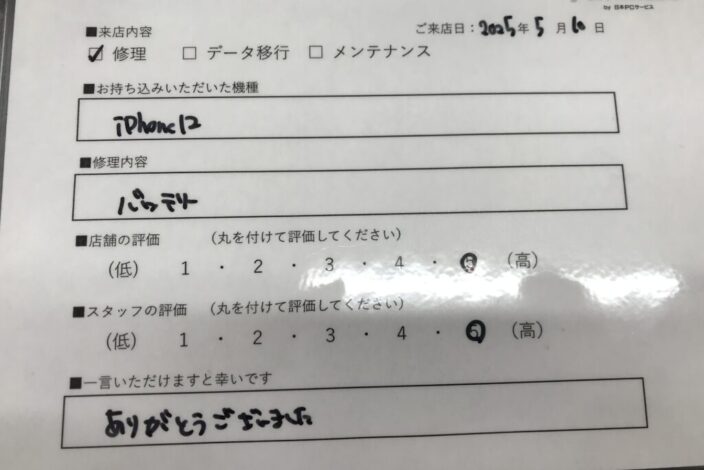 by 日本PCサービス
■来店内容
ご来店日：2025年5月10日
☑ 修理 □ データ移行 □ メンテナンス
■お持ち込みいただいた機種
iPhone12
■修理内容
バッテリー
■店舗の評価 （丸を付けて評価してください）
（低） 1 ・ 2 ・ 3 ・ 4 ・ 5 （高）
■スタッフの評価 （丸を付けて評価してください）
（低） 1 ・ 2 ・ 3 ・ 4 ・ 5 （高）
■一言いただけますと幸いです
ありがとうございました